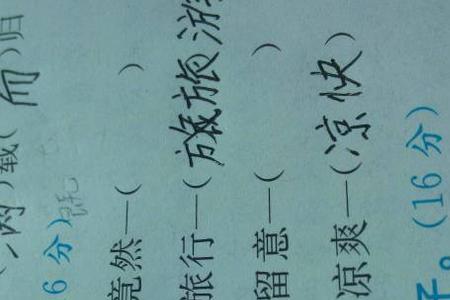 (满)载(而)归
6 分)
竟然—( )
旅行—(旅旅游
留意—( )
凉爽—(凉快)
。(16 分)